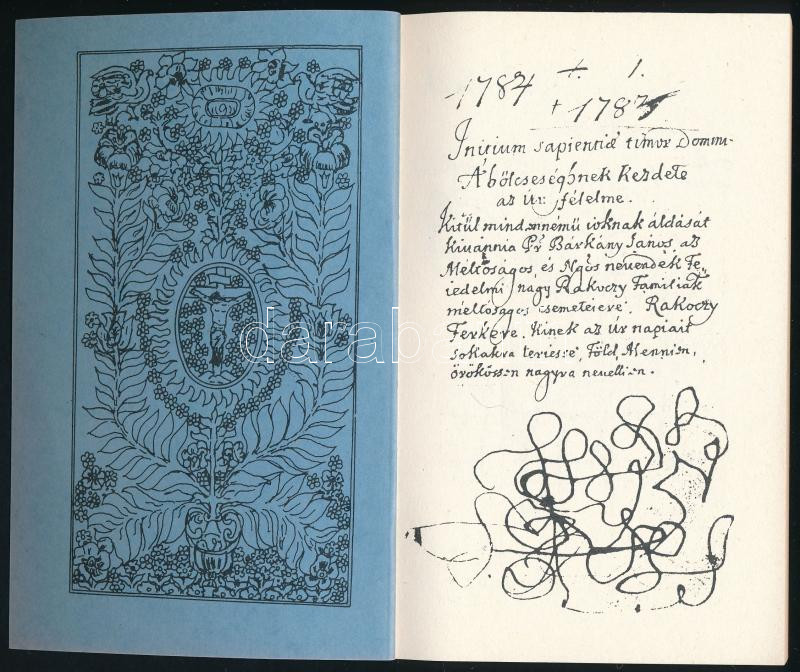 1784 + 1.
+ 1783
Initium sapientiæ timor Domini
A' bölcseségönek kezdete
az Úr félelme.
Kitül mindennemű ioknak áldását
kiuannia Pr Bárkány János, az
Méltóságos, és Ngós neuendék Fe,
iedelmi nagy Rakoczy Familiák
méltóságos csemetéiere, Rakoczy
Ferkére. Kinek az Úr napiait
sokakra teriessé, Föld, Mennien,
örökössen nagyra neuellien.
darabanth